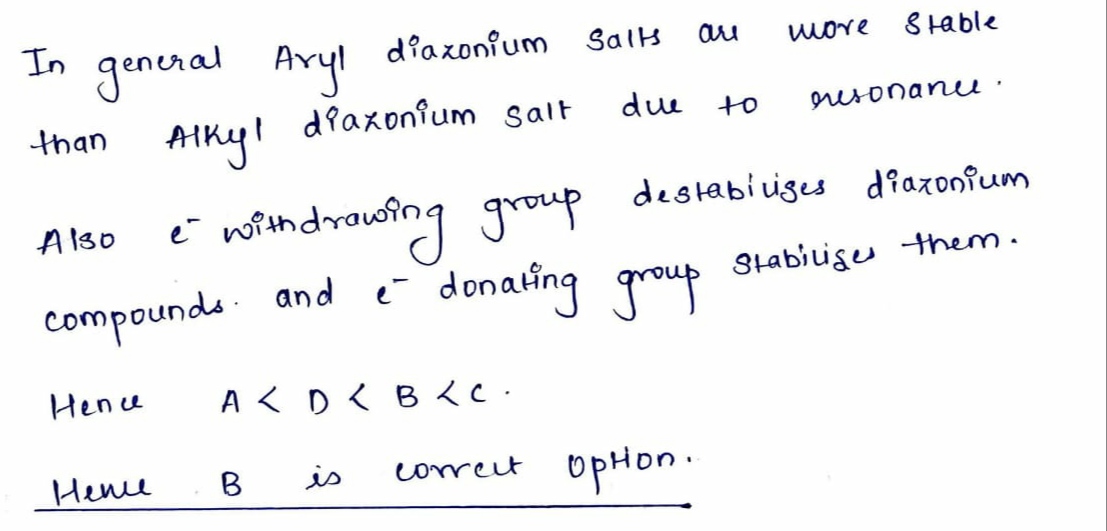 In general Aryl diazonium Salts are more Stable
than Alkyl diazonium Salt due to resonance.
Also e⁻ withdrawing group destabilizes diazonium
compounds. and e⁻ donating group Stabilizes them.
Hence A < D < B < C.
Hence B is correct option.